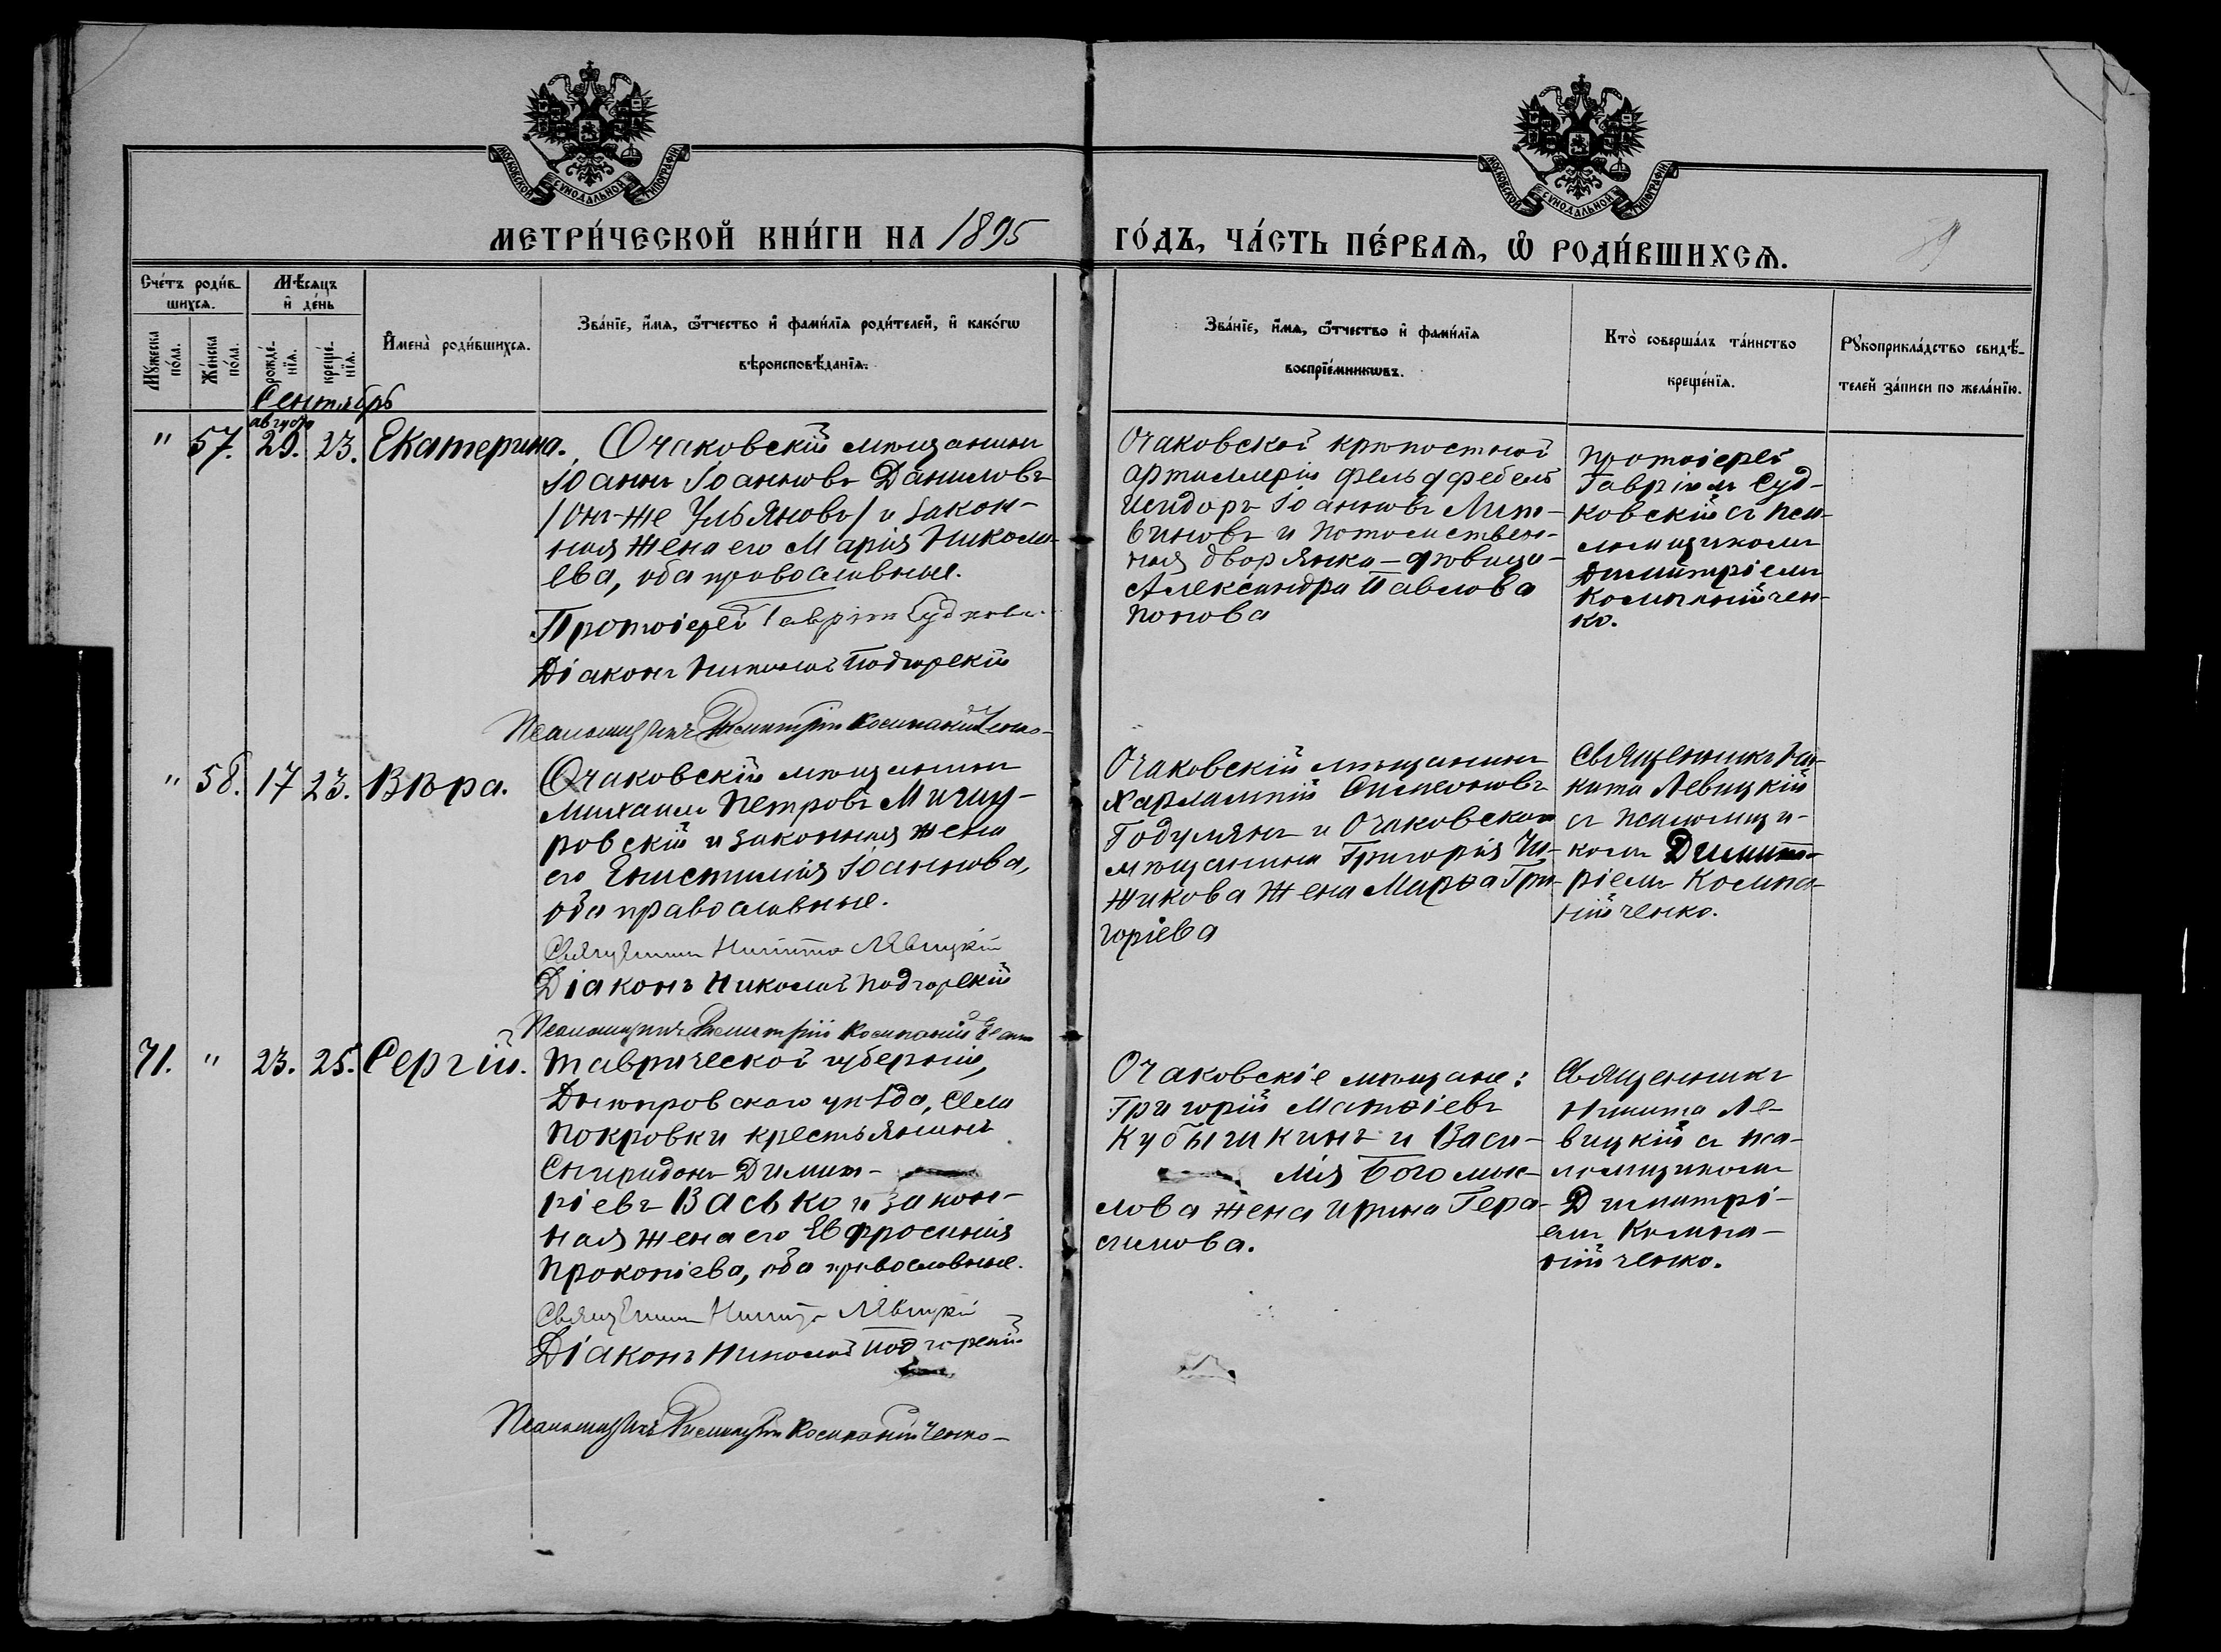 МОСКОВСКОЙ СѴНОДАЛЬНОЙ ТИПОГРАФІИ
МОСКОВСКОЙ СѴНОДАЛЬНОЙ ТИПОГРАФІИ
МЕТРИ́ЧЕСКОЙ КНИ́ГИ НА 1895
ГО́ДЪ, ЧА́СТЬ ПЕ́РВАѦ, Ѽ РОДИ́ВШИХСѦ.
39
Сче́тъ роди́в-
шихсѧ.
Мѣ́сѧцъ
и҆ де́нь
Мꙋ́жеска по́ла.
Же́нска по́ла.
рожде́-нїѧ.
креще́-нїѧ.
И҆мена̀ роди́вшихсѧ.
Зва́нїе, и҆́мѧ, ѻ҆́тчество и҆ фами́лїѧ роди́телей, и҆ како́гѡ
вѣроисповѣ́данїѧ.
Зва́нїе, и҆́мѧ, ѻ҆́тчество и҆ фами́лїѧ
воспрїе́мникѡвъ.
Кто̀ соверша́лъ та́инство
креще́нїѧ.
Рꙋкоприкла́дство свидѣ́-
телей за́писи по жела́нїю.
Сентябрь
августа
" 57. 29. 23. Екатерина.
Очаковскій мѣщанинъ
Іоаннъ Іоанновъ Даниловъ
/Онъ-же Ульяновъ/ и закон-
ная жена его Марія Никола-
ева, оба православные.
Протоіерей Гавріилъ Судковс.
Діаконъ Николай Подгорскій
Псаломщикъ Димитрій Компанійченко-
Очаковской крѣпостной
артиллеріи фельдфебель
Исидоръ Іоанновъ Лит-
виновъ и потомствен-
ная дворянка-дѣвица
Александра Павлова
Попова
Протоіерей
Гавріилъ Суд-
ковскій съ пса-
ломщикомъ
Димитріемъ
Компанійчен-
ко.
" 58. 17 23. Вѣра.
Очаковскій мѣщанинъ
Михаилъ Петровъ Мичу-
ровскій и законная жена
его Епистимія Іоаннова,
оба православные.
Священникъ Никита Левицкій
Діаконъ Николай Подгорскій
Псаломщикъ Димитрій Компанійченко
Очаковскій мѣщанинъ
Харлампій Симеоновъ
Годулянъ и Очаковскаго
мѣщанина Григорія Чи-
жикова жена Марѳа Гри-
горіева
Священникъ Ни-
кита Левицкій
съ псаломщи-
комъ Димит-
ріемъ Компа-
нійченко.
71. " 23. 25. Сергій.
Таврической губерніи,
Днѣпровскаго уѣзда, села
Покровки крестьянинъ
Спиридонъ Димит-
ріевъ Васько и закон-
ная жена его Евфросинія
Прокопіева, оба православные.
Священникъ Никита Левицкій
Діаконъ Николай Подгорскій
Псаломщикъ Димитрій Компанійченко-
Очаковскіе мѣщане:
Григорій Матѳіевъ
Кубышкинъ и Васи-
лія Богомок-
лова жена Ирина Гера-
симова.
Священникъ
Никита Ле-
вицкій съ пса-
ломщикомъ
Димитрі-
емъ Компа-
нійченко.